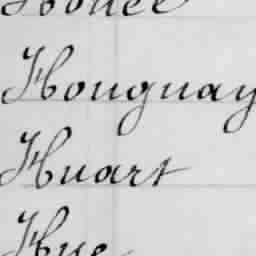 Houguay
Huart
Hue